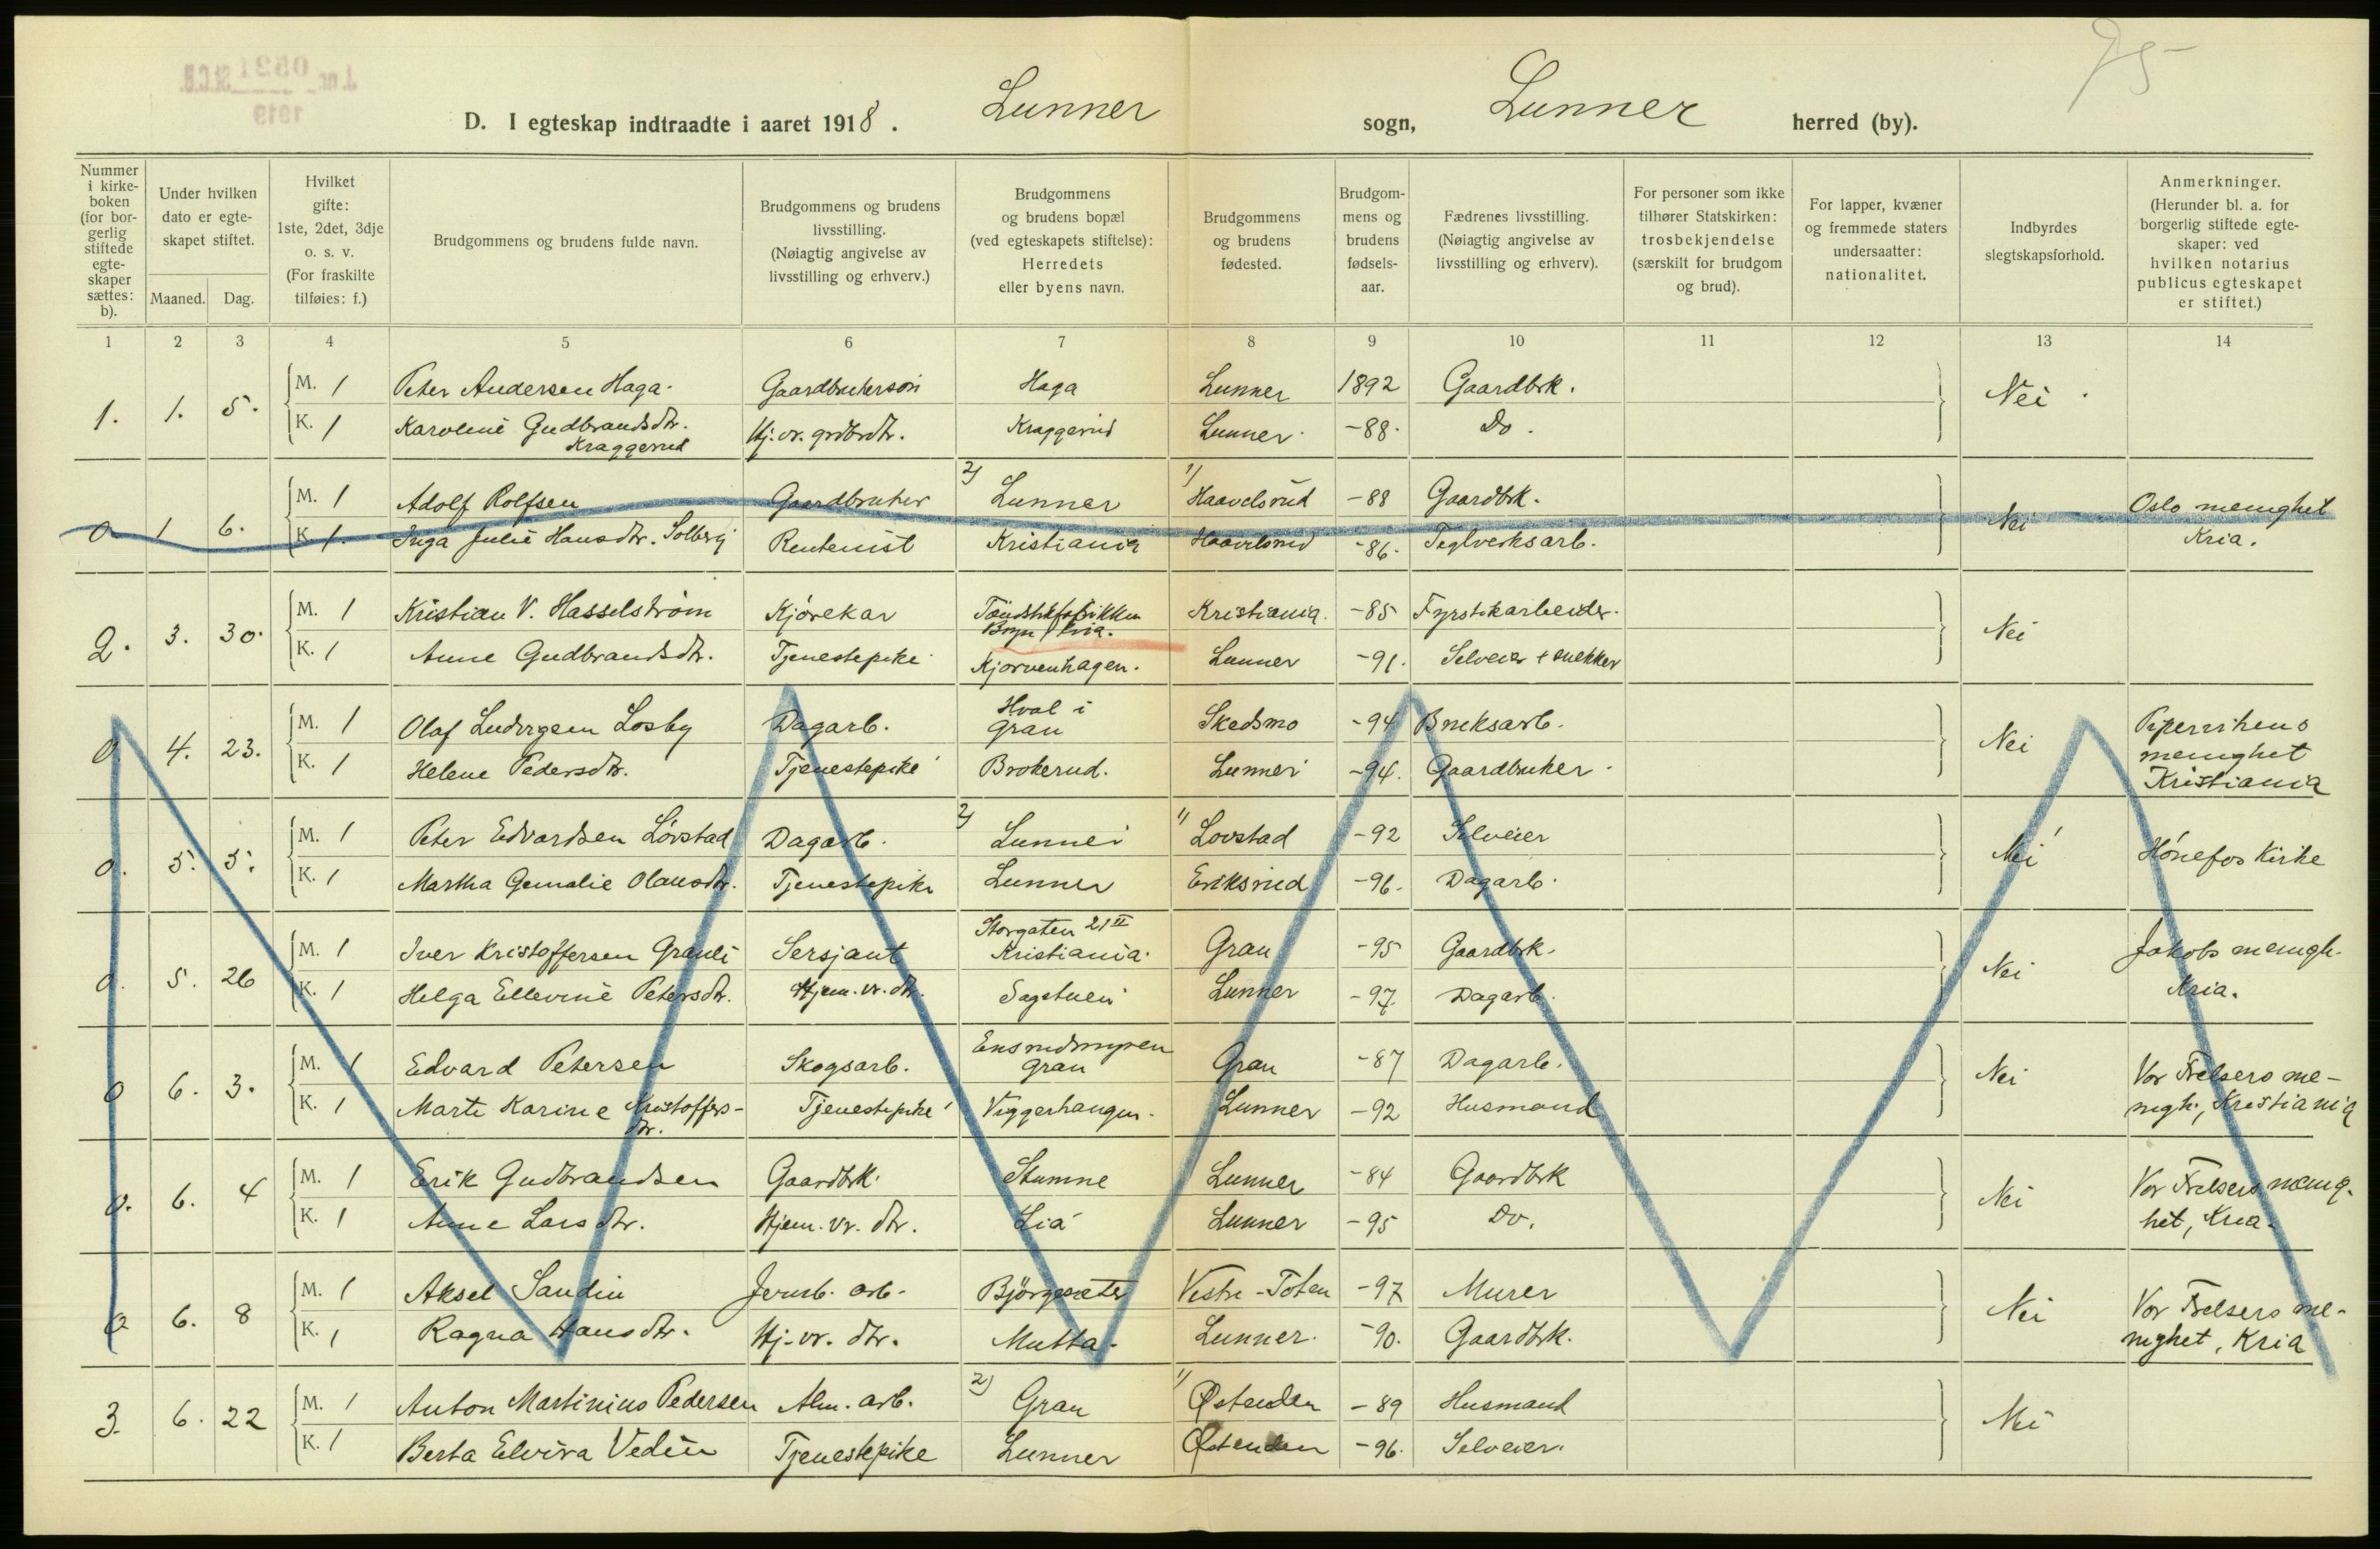 75
J.nr. 0521 St.C.B.
1919
D. I egteskap indtraadte i aaret 1918. Lunner sogn, Lunner herred (by).
Nummer
i kirke-
boken
(for bor-
gerlig
stiftede
egte-
skaper
sættes:
b).
Under hvilken
dato er egte-
skapet stiftet.
Maaned. Dag.
Hvilket
gifte:
1ste, 2det, 3dje
o. s. v.
(For fraskilte
tilføies: f.)
Brudgommens og brudens fulde navn.
Brudgommens og brudens
livsstilling.
(Nøiagtig angivelse av
livsstilling og erhverv.)
Brudgommens
og brudens bopæl
(ved egteskapets stiftelse):
Herredets
eller byens navn.
Brudgommens
og brudens
fødested.
Brudgom-
mens og
brudens
fødsels-
aar.
Fædrenes livsstilling.
(Nøiagtig angivelse av
livsstilling og erhverv).
For personer som ikke
tilhører Statskirken:
trosbekjendelse
(særskilt for brudgom
og brud).
For lapper, kvæner
og fremmede staters
undersaatter:
nationalitet.
Indbyrdes
slegtskapsforhold.
Anmerkninger.
(Herunder bl. a. for
borgerlig stiftede egte-
skaper: ved
hvilken notarius
publicus egteskapet
er stiftet.)
1 2 3 4 5 6 7 8 9 10 11 12 13 14
1. 1. 5. M. 1 Peter Andersen Haga. Gaardbrukersøn Haga Lunner 1892 Gaardbrk. Nei.
K. 1 Karoline Gudbrandsdtr. Kraggerud Hj. vr. grdbrdtr. Kraggerud Lunner -88. Do.
0 1 6. M. 1 Adolf Rolfsen Gaardbruker 2) Lunner 1) Haavelsrud -88 Gaardbrk. Nei Oslo menighet
K. 1. Inga Julie Hansdtr. Solberg Rentenist Kristiania Haavelsrud -86. Teglverksarb. Kria.
2. 3. 30. M. 1 Kristian V. Hasselstrøm Kjørekar Tændstikfabrikken Bryn, Kria. Kristiania. -85 Fyrstikarbeider. Nei
K. 1 Anne Gudbrandsdtr. Tjenestepike Kjorvenhagen. Lunner -91. Selveier + snekker
0. 4. 23. M. 1 Olaf Ludvigsen Losby Dagarb. Hval i Gran Skedsmo -94 Bruksarb. Nei Pipervikens
K. 1 Helene Pedersdtr. Tjenestepike Brokerud. Lunner -94. Gaardbruker. menighet
Kristiania
0. 5. 5. M. 1 Peter Edvardsen Løvstad Dagarb. 2) Lunner 1) Lovstad -92 Selveier Nei Hønefos Kirke
K. 1 Martha Gemalie Olausdtr. Tjenestepike Lunner Eriksrud -96. Dagarb.
0. 5. 26 M. 1 Iver Kristoffersen Granli Sersjant Storgaten 21 II Kristiania. Gran -95 Gaardbrk. Nei Jakobs menigh.
K. 1 Helga Ellevine Petersdtr. Hjem. vr. dtr. Sagstuen Lunner -97. Dagarb. Kria.
0 6. 3. M. 1 Edvard Petersen Skogsarb. Ensrudmyren Gran Gran -87 Dagarb. Nei Vor Frelsers me-
K. 1 Marte Karine Kristoffers- dtr. Tjenestepike Viggerhaugen. Lunner -92 Husmand nigh., Kristiania
0. 6. 4 M. 1 Erik Gudbrandsen Gaardbrk. Stumne Lunner -84 Gaardbrk Nei Vor Frelsers menig-
K. 1 Anne Larsdtr. Hjem. vr. dtr. Lia Lunner -95 Do. het, Kria.
0 6. 8 M. 1 Aksel Sandin Jernb. arb. Bjørgesæter Vestre-Toten -97 Murer Nei Vor Frelsers me-
K. 1 Ragna Hansdtr. Hj. vr. dtr. Mutta. Lunner. -90. Gaardbrk. nighet, Kria
3. 6. 22 M. 1 Anton Martinius Pedersen Alm. arb. 2) Gran 1) Østenden -89 Husmand Nei
K. 1 Berta Elvira Vedin Tjenestepike Lunner Østenden -96. Selveier.